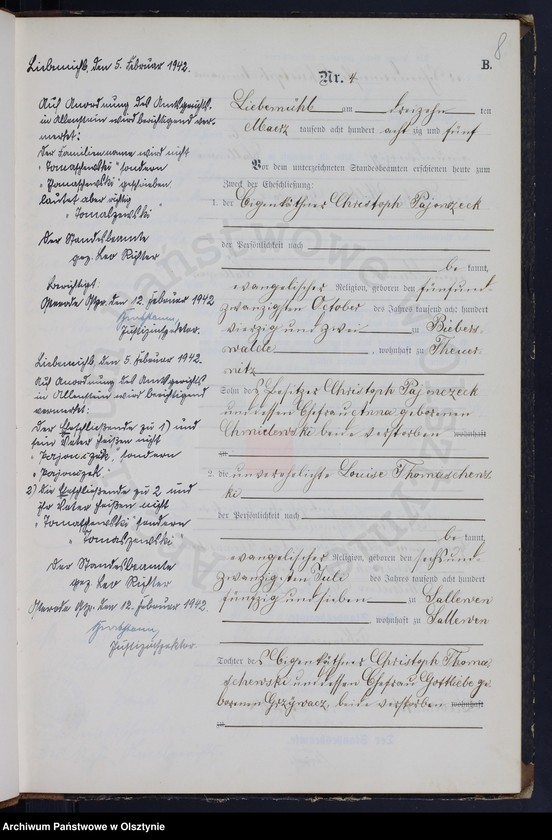 8
B.
Nr. 4
Liebemühl, den 5. Februar 1942.
Auf Anordnung des Amtsgerichts
in Allenstein wird berichtigend ver-
merkt:
Der Familienname wird nicht
"Tomaschewski" sondern
"Tomaszewski"
Der Standesbeamte
gez. Leo Richter
Berichtigt
Osterode Opr. den 12. Februar 1942
Justizinspektor.
Liebemühl, den 5. Februar 1942.
Auf Anordnung des Amtsgerichts
in Allenstein wird berichtigend
vermerkt:
Der Eheschließende zu 1) und
sein Vater heißen nicht
sondern
2) die Eheschließende zu 2 und
ihr Vater heißen nicht
"Tomaschewski" sondern
"Tomaszewski"
Der Standesbeamte
gez. Leo Richter
Osterode Opr. den 12. Februar 1942.
Justizinspektor.
Liebemühl am dreizehn ten
Maerz tausend acht hundert acht zig und fünf
Vor dem unterzeichneten Standesbeamten erschienen heute zum
Zweck der Eheschließung:
1. der Eigenkäthner Christoph Pajonczeck
der Persönlichkeit nach
be kannt,
evangelischer Religion, geboren den fünfund-
zwanzigsten October des Jahres tausend acht hundert
vierzig und zwei zu Biebers-
walde, wohnhaft zu Theuer-
nitz
Sohn des Besitzer Christoph Pajonczeck
und dessen Ehefrau Anna geborenen
Chmielewski beide verstorben wohnhaft
zu
2. die unverehelichte Louise Thomaschews-
ki
der Persönlichkeit nach
be kannt,
evangelischer Religion, geboren den sechsund-
zwanzigsten Juli des Jahres tausend acht hundert
fünfzig und sieben zu Sallewen
, wohnhaft zu Sallewen
Tochter des Eigenkäthner Christoph Thoma-
schewski und dessen Ehefrau Gottliebe ge-
borenen Grzywacz, beide verstorben wohnhaft
zu
Archiwum Państwowe w Olsztynie